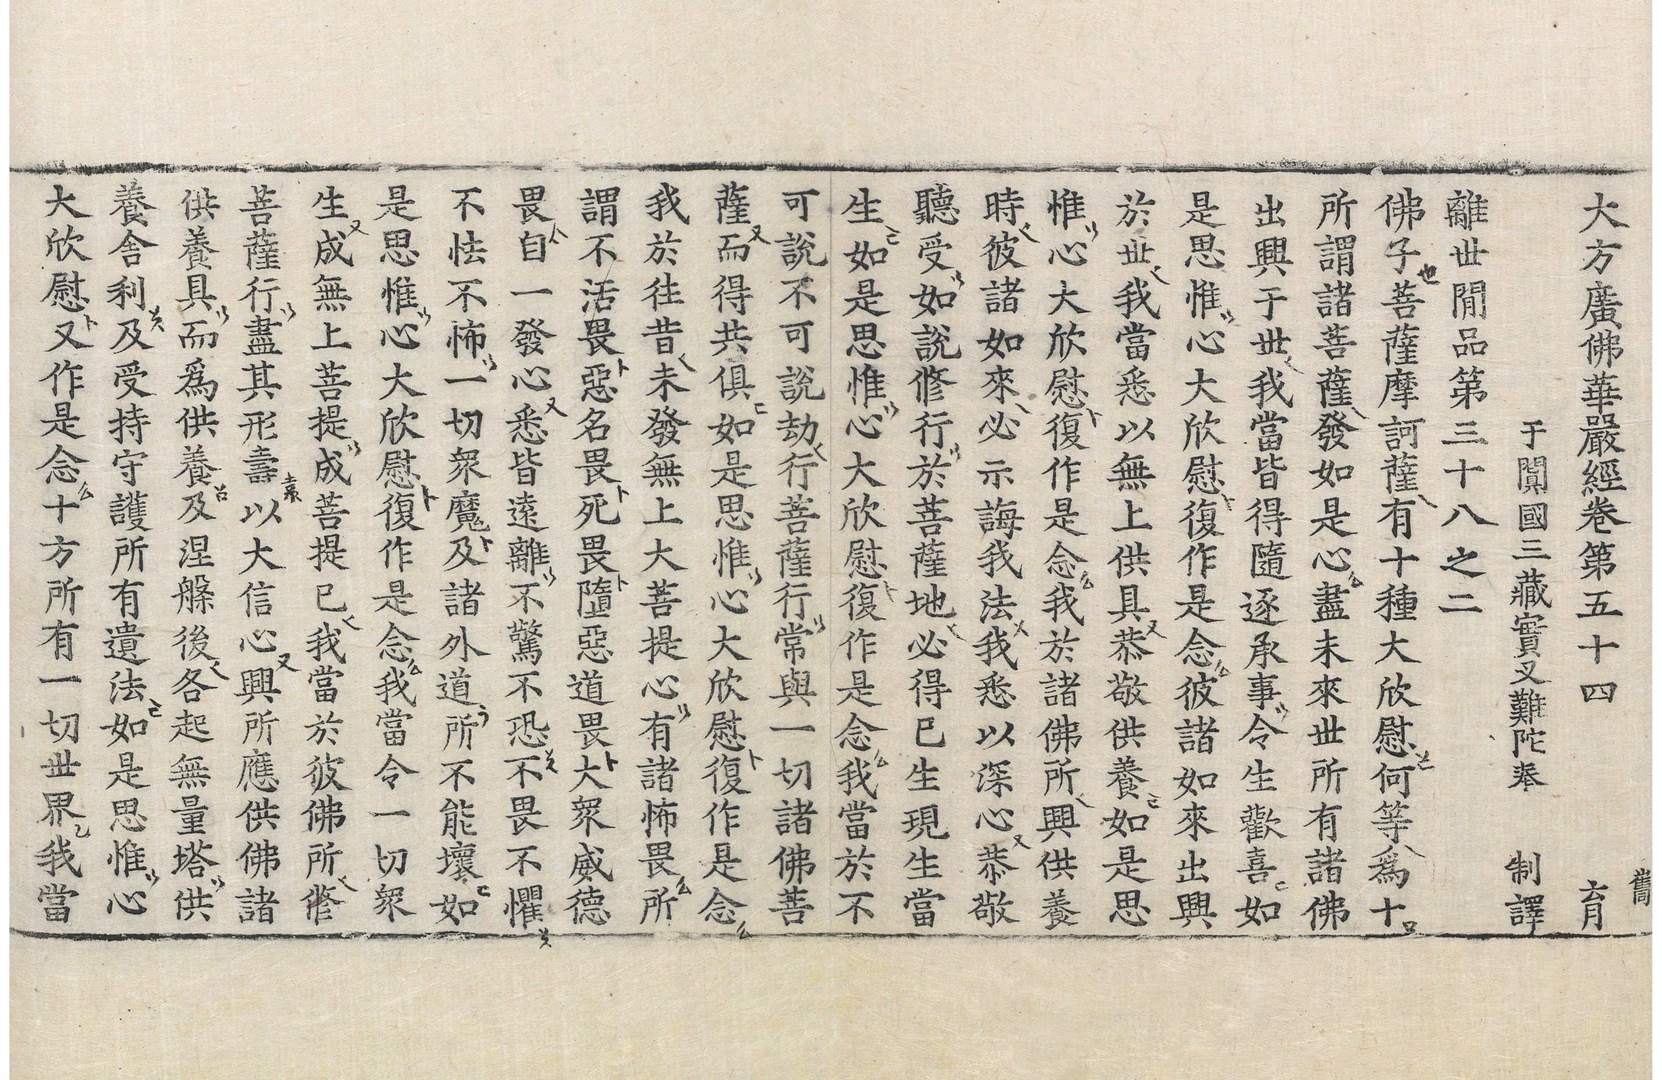 大方廣佛華嚴經卷第五十四
于闐國三藏實叉難陀奉 制譯
離世間品第三十八之二
佛子菩薩摩訶薩有十種大欣慰何等爲十
所謂諸菩薩發如是心盡未來世所有諸佛
出興于世我當皆得隨逐承事令生歡喜如
是思惟心大欣慰復作是念彼諸如來出興
於世我當悉以無上供具恭敬供養如是思
惟心大欣慰復作是念我於諸佛所興供養
時彼諸如來必示誨我法我悉以深心恭敬
聽受如說修行於菩薩地必得已生現生當
生如是思惟心大欣慰復作是念我當於不
可說不可說劫行菩薩行常與一切諸佛菩
薩而得共俱如是思惟心大欣慰復作是念
我於往昔未發無上大菩提心有諸怖畏所
謂不活畏惡名畏死畏墮惡道畏大衆威德
畏自一發心悉皆遠離不驚不恐不畏不懼
不怯不怖一切衆魔及諸外道所不能壞如
是思惟心大欣慰復作是念我當令一切衆
生成無上菩提成菩提已我當於彼佛所修
菩薩行盡其形壽以大信心興所應供佛諸
供養具而爲供養及涅槃後各起無量塔供
養舍利及受持守護所有遺法如是思惟心
大欣慰又作是念十方所有一切世界我當